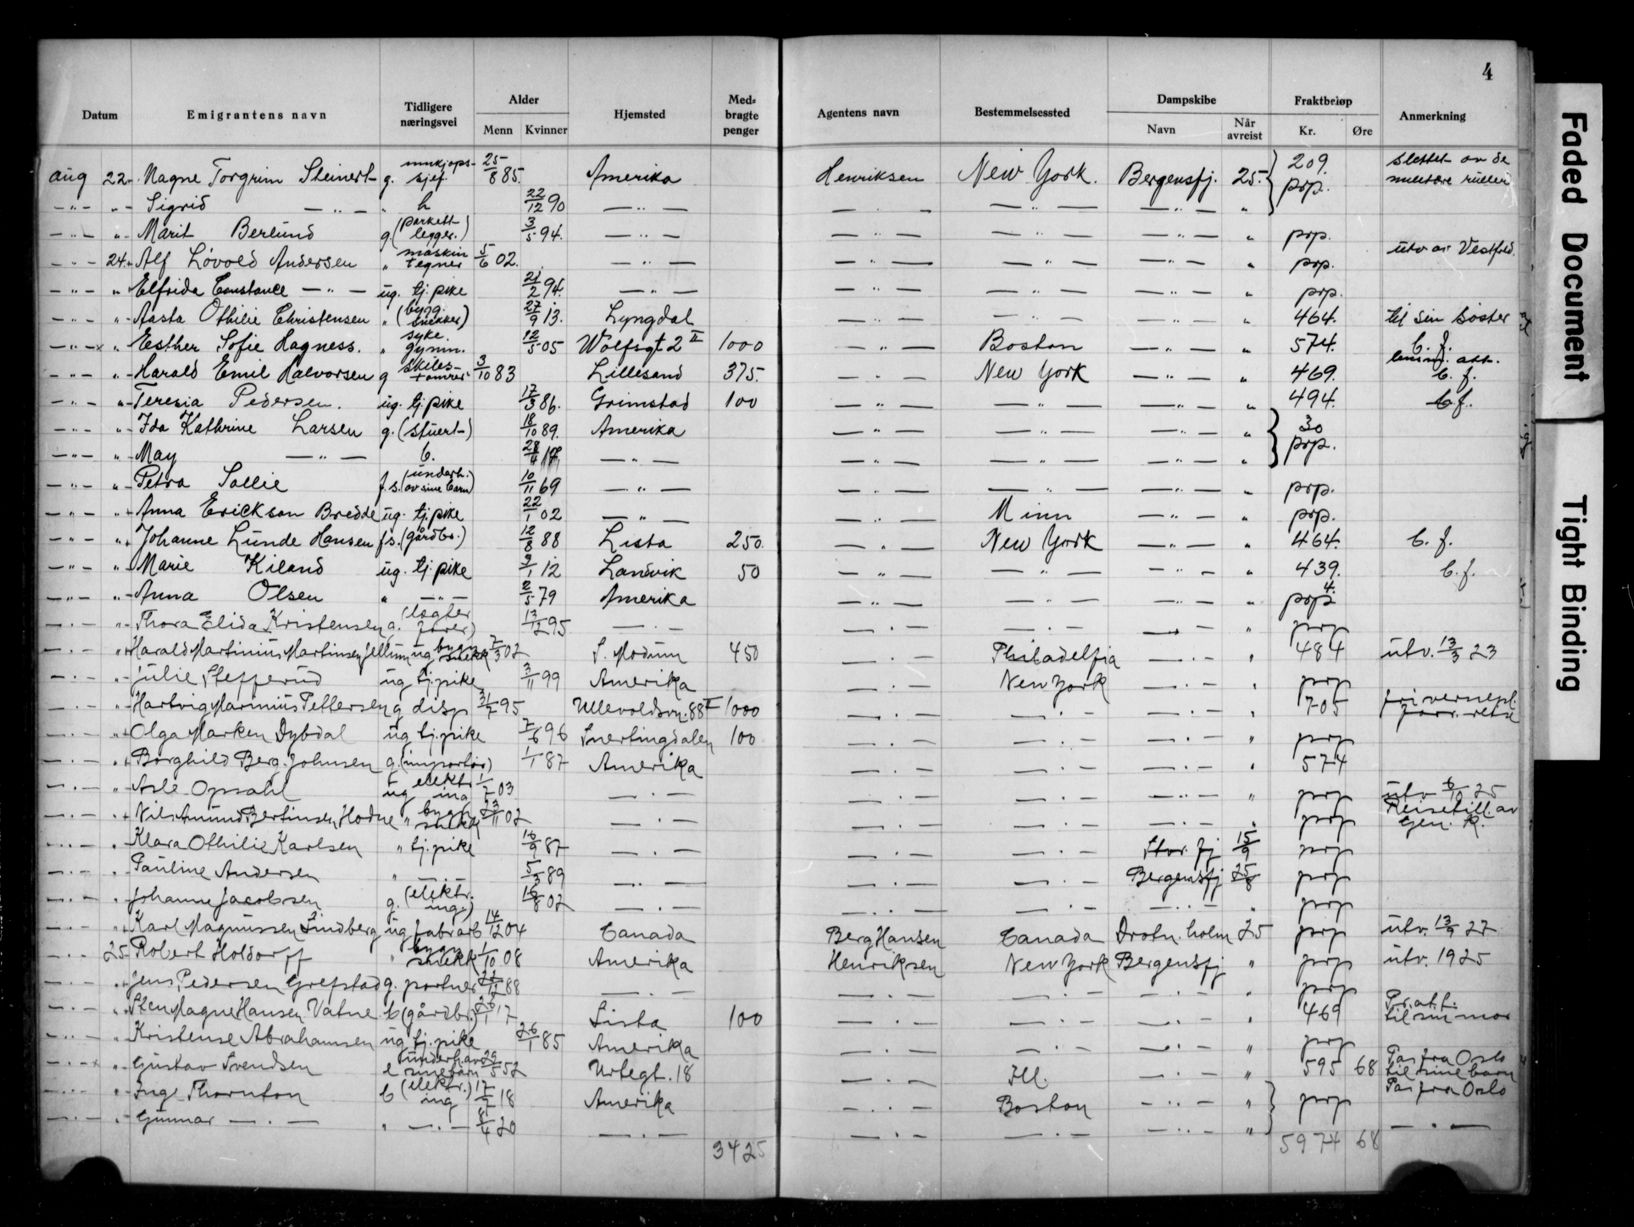 4
Datum Emigrantens navn Tidligere næringsvei Alder Menn Kvinner Hjemsted Medbragte penger Agentens navn Bestemmelsessted Dampskibe Navn Når avreist Fraktbeløp Kr. Øre Anmerkning
aug 22 Magne Torgrim Steinert g. sjef 25/8 85 Amerika Henriksen New York. Bergensfj. 25. 209. prp. slettet av de militære ruller
—"— " Sigrid —"— " h 22/12 90 —"— —"— —"— —"— "
—"— " Marit Berlund g. (parkettlegger.) 3/5 94. —"— —"— —"— —"— " prp.
—"— 24. Alf Lövold Andersen " maskintegner 5/6 02. —"— —"— —"— —"— " prp. utv av Vestfold.
—"— " Elfrida Constance —"— ug. tj. pike 21/2 94. —"— —"— —"— —"— " prp.
—"— " Aasta Othilie Christensen " (bygg. snekker) 27/9 13. Lyngdal —"— —"— —"— " 464. til sin söster
—"— " Esther Sofie Hagness. " syke. gymn. 12/5 05 Wolfsgt. 2 II 1000 —"— Boston —"— " 574. C. f.
—"— " Harald Emil Halvorsen g skibstömrer 3/10 83 Lillesand 375. —"— New York —"— " 469. C. f.
—"— " Teresia Pedersen. ug. tj. pike 17/3 86. Grimstad 100 —"— —"— —"— " 494. C. f.
—"— " Ida Kathrine Larsen g. (stuert) 18/10 89. Amerika —"— —"— —"— " 30 prp.
—"— " May —"— b. 28/4 —"— —"— —"— —"— "
—"— " Petra Sollie f. s. (underh. av sine barn) 10/11 69 —"— —"— —"— —"— " prp.
—"— " Anna Erickson Bredde ug. tj. pike 22/1 02 —"— —"— Minn —"— " prp.
—"— " Johanne Lunde Hansen f. s. (gårdbr.) 12/8 88 Lista 250. —"— New York —"— " 464. C. f.
—"— " Marie Kiland ug. tj. pike 9/1 12 Landvik 50 —"— —"— —"— " 439. C. f.
—"— " Anna Olsen " —"— 2/5 79 Amerika —"— —"— —"— " prp.
—"— " Thora Elida Kristensen g. (logter förer) 17/12 95 —"— —"— —"— —"— " prp
—"— " Harald Martinius Martinsen Jellum ug bygn. snekk 7/3 02 S. Modum 450 —"— Philadelfia —"— " 484 utv. 13/3 23
—"— " Julie Stefferud ug tj. pike 3/11 99 Amerika —"— New York —"— " prp
—"— " Hartvig Marinius Pettersen g disp 31/7 95 Ullevoldsvn. 88 I 1000 —"— —"— —"— " 705 fri vernepl.
—"— " Olga Marken Dybdal ug tj. pike 7/6 96 Snertingdalen 100 —"— —"— —"— " prp
—"— " Borghild Berg Johnsen g. (importör) 1/1 87 Amerika —"— —"— —"— " 574
—"— " Asle Opsahl ug elektr. ing 1/7 03 —"— —"— —"— —"— " prp utv 6/10 25
—"— " Nils Amund Bertinsen Hodne " bygn. snekk 23/11 02 —"— —"— —"— —"— " prp Reisetill. av Gen. K.
—"— " Klara Othilie Karlsen " tj. pike 16/9 87 —"— —"— —"— Stav. fj 15/9 prp
—"— " Pauline Andersen " —"— 5/3 89 —"— —"— —"— Bergensfj 25/8 prp
—"— " Johanne Jacobsen g. (elektr. ing.) 16/8 02 —"— —"— —"— —"— " prp
—"— " Karl Magnussen Lindberg ug fabrarb 14/12 04 Canada Berg Hansen Canada Drotn. holm 25 prp utv. 13/9 27
—"— 25 Robert Holdorff " bygn snekk 1/10 08 Amerika Henriksen New York Bergensfj " prp utv. 1925
—"— " Jens Pedersen Grefstad g. portner 88 —"— —"— —"— —"— " prp
—"— " Sten Magne Hansen Vatne b (gårdbr.) 26/1 17 Lista 100 —"— —"— —"— " 469 Pr. att. til sin mor
—"— " Kristense Abrahamsen ug tj. pike 26/1 85 Amerika —"— —"— —"— " prp
—"— " Gustav Svendsen e (underh. av sine barn 29/5 52 Urtegt. 18 —"— Ill. —"— " 595 68 Pas fra Oslo til sine barn
—"— " Inge Thornton b (elektr.) ing 17/7 18 Amerika —"— Boston —"— " prp Pas fra Oslo
—"— " Gunnar —"— " —"— 8/4 20 —"— —"— —"— —"— " —"—
3425 5974 68
Faded Document
Tight Binding